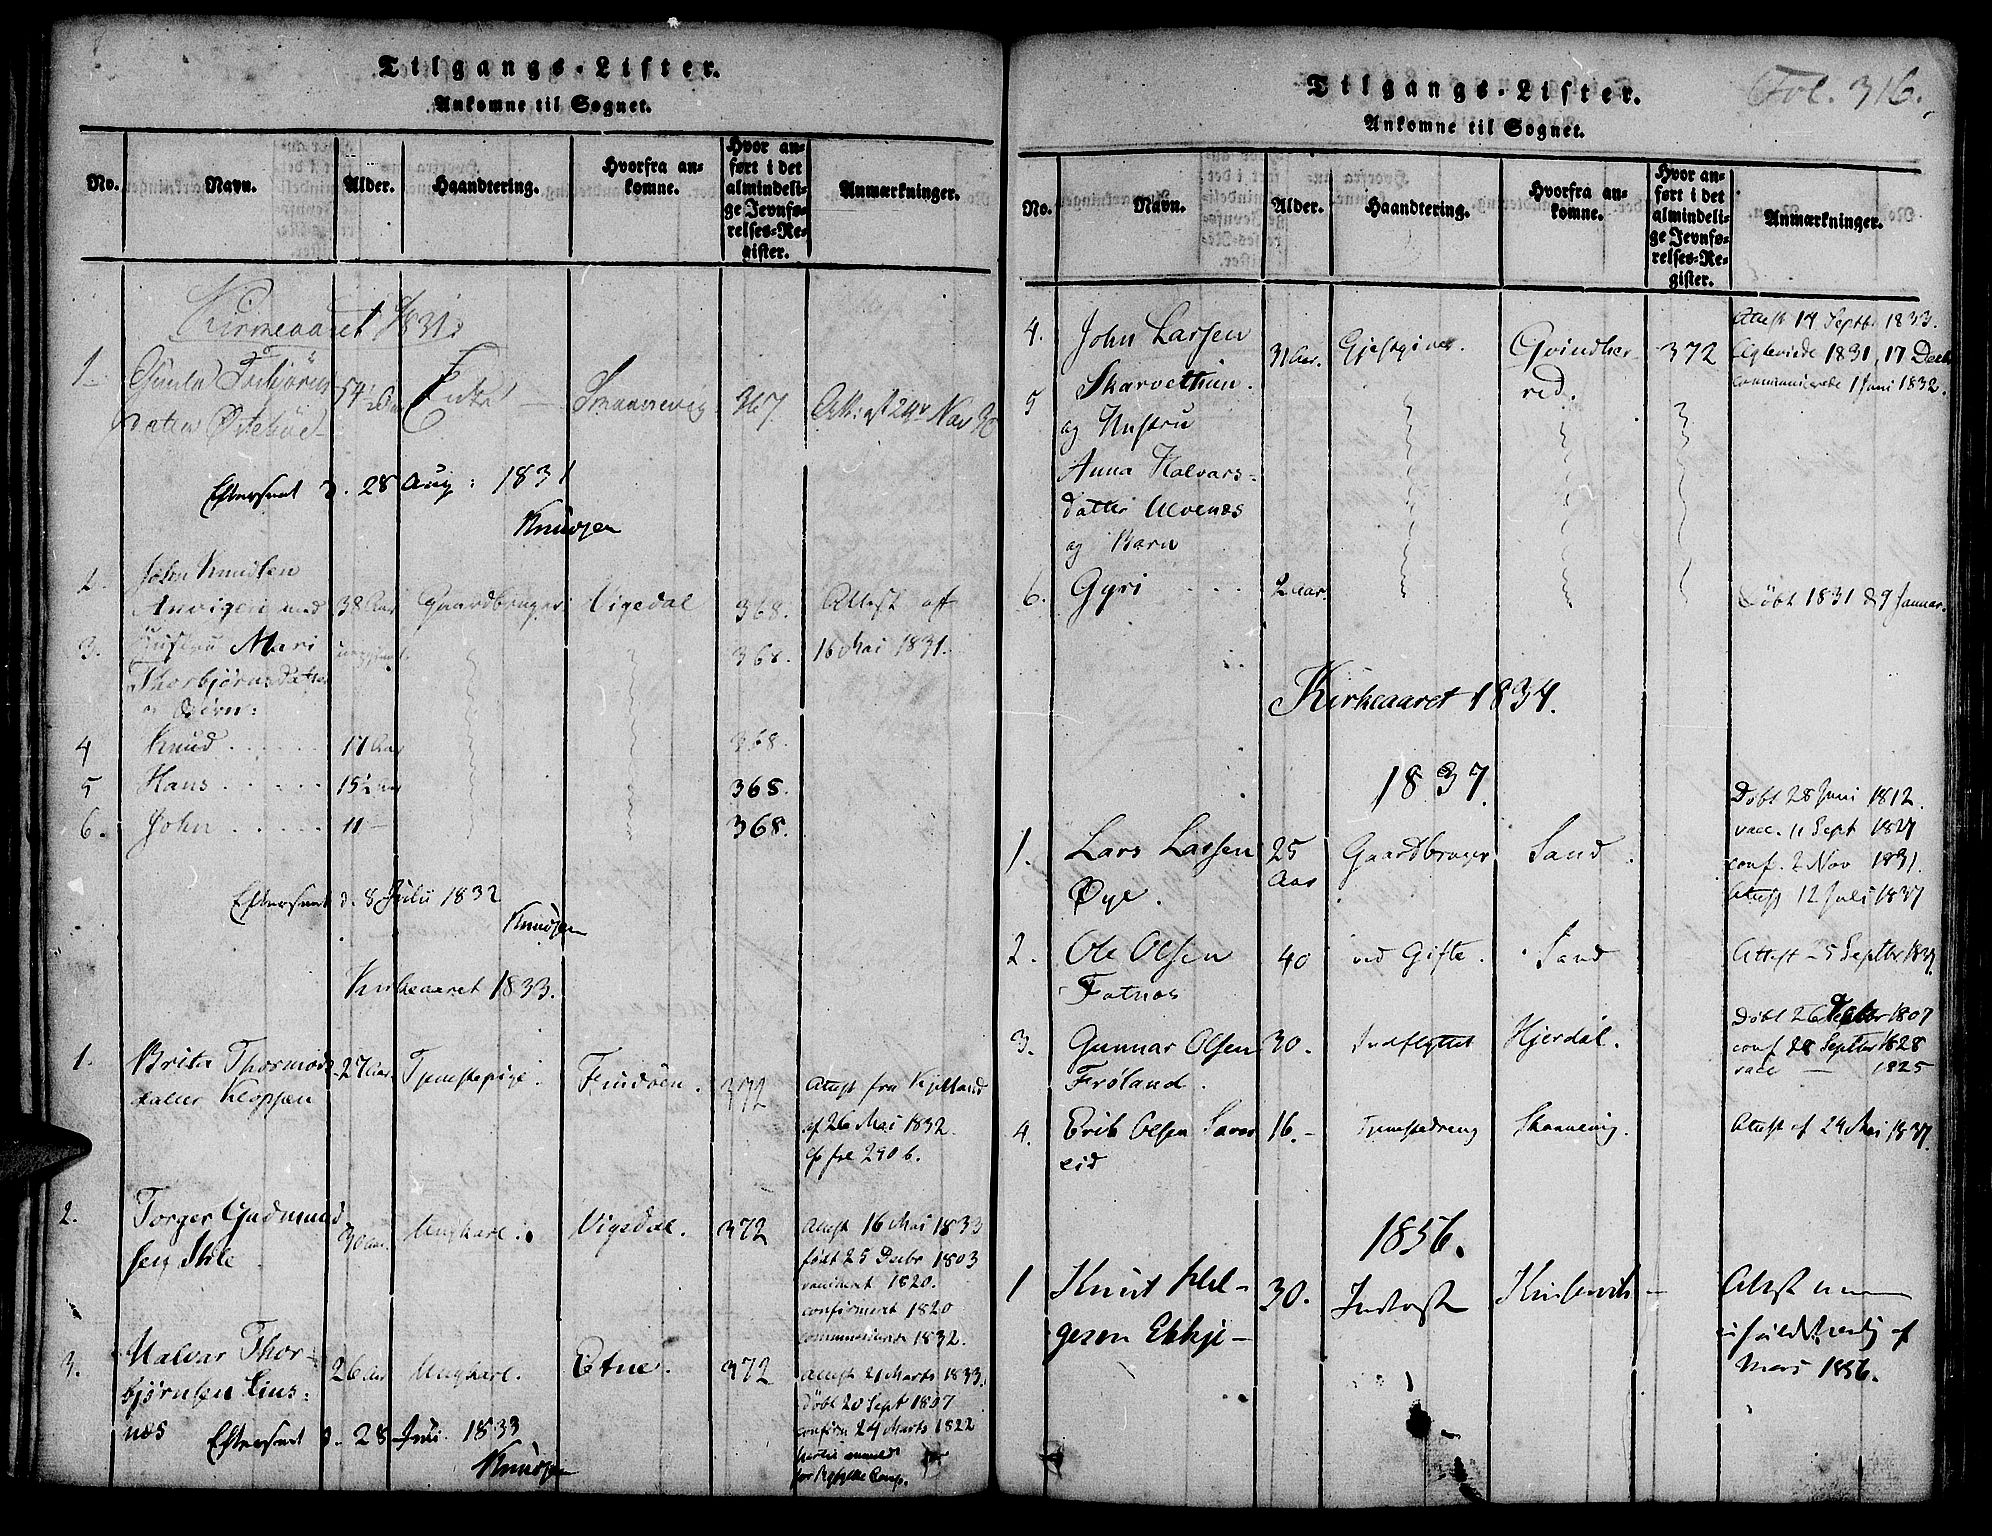 Tilgangs-Lister.
Ankomne til Sognet.
No. Navn. Alder. Haandtering. Hvorfra ankomne. Hvor anført i det almindelige Jevnførelses-Register. Anmærkninger.
Kirkeaaret 1831.
1
datter
54½ Aar Enke 367
Efterseet d. 28 Aug: 1831
Knudsen
2. John Knudsen
med 38 Aar Gaardbruger Vigedal 368. Attest af
3. Hustru Mari 368. 16 Mai 1831.
Thorbjørnsdatter
og Børn:
4 Knud 17 Aar 368.
5 Hans 15½ Aar 368.
6. John 11 — 368.
Efterseet d. 8 Julii 1832
Knudsen
Kirkeaaret 1833.
1. Brita Thormods- 27 Aar. Tjenestepige. Findöen. 372 Attest fra
datter Kloppen af 26 Mai 1832.
fol 290 b.
2. Torger Gudmund 30 Aar. Ungkarl. Vigedal. 372 Attest 16 Mai 1833
sen Ihle født 25 Decbr 1803
vaccineret 1820.
confirmeret 1820
communiceret 1832.
3. Halvar Thor- 26 Aar Ungkarl. Etne. 372 Attest 21 Marts 1833.
bjørnsen Døbt 20 Sept 1807
næs confirm 24 Marts 1822
Efterseet d. 28 Juli 1833
Knudsen
Tilgangs-Lister.
Ankomne til Sognet.
Fol. 316.
No. Navn. Alder. Haandtering. Hvorfra ankomne. Hvor anført i det almindelige Jevnførelses-Register. Anmærkninger.
4. John Larsen 31 Aar. Gjestgiver. Qvindher- 372 Attest 14 Septb. 1833.
Skarvethun. red. Egteviede 1831, 17 Decb
5 og Hustru communicerede 1 Juni 1832.
Anna Halvars-
datter Ulvenæs
og Barn
6. Gyri 2 Aar. Døbt 1831 d 9 Januar.
Kirkeaaret 1834.
1837.
1. Lars Larsen 25 Aar Gaardbruger Sand. Døbt 28 Juni 1812.
Øye. vacc. 11 Sept 1827
conf. 2 Nov 1831.
Attest 12 Juli 1837
2. Ole Olsen 40 ved Gifte. Sand Attest 5 Septbr 1837
Fatnes
3. Gunnar Olsen 30. Indflyttet Hjerdal. Døbt 26 1807
Frøland. conf 28 Septbr 1828
vacc — 1825
4. Erik Olsen 16.- Tjenestedreng Skaanevig. Attest af 24 Mai 1837
eid
1856.
1 Knut Hel- 30. Inderst —
gesen Ekkje- Attest
af
Mars 1856.